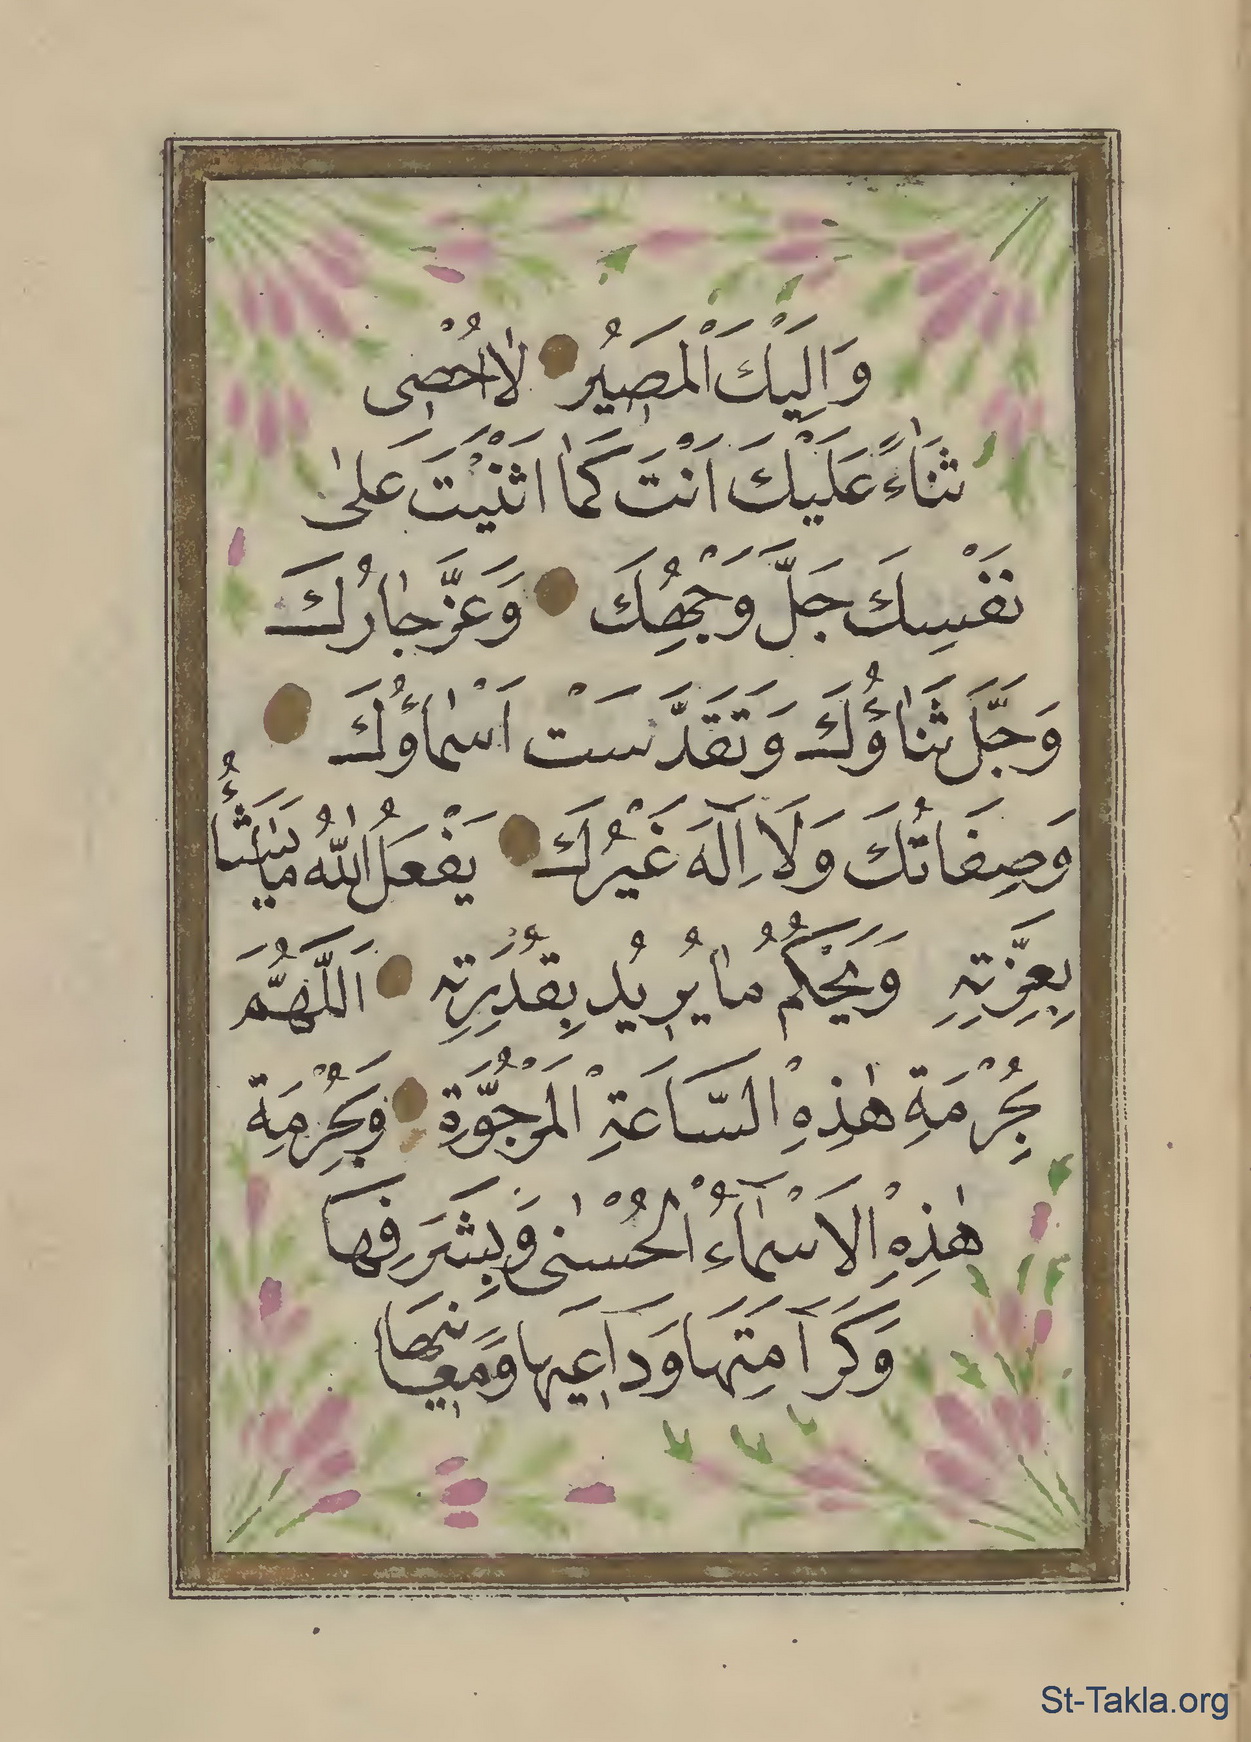 وَاِلَيْكَ الْمَصِيرُ لَا اُحْصِى
ثَنَاءً عَلَيْكَ اَنْتَ كَمَا اَثْنَيْتَ عَلٰى
نَفْسِكَ جَلَّ وَجْهُكَ وَعَزَّ جَارُكَ
وَجَلَّ ثَنَاؤُكَ وَتَقَدَّسَتْ اَسْمَاؤُكَ
وَصِفَاتُكَ وَلَا اِلٰهَ غَيْرُكَ يَفْعَلُ اللّٰهُ مَا يَشَاءُ
بِعِزَّتِهِ وَيَحْكُمُ مَا يُرِيدُ بِقُدْرَتِهِ اَللّٰهُمَّ
بِحُرْمَةِ هٰذِهِ السَّاعَةِ الْمَرْجُوَّةِ وَبِحُرْمَةِ
هٰذِهِ الْاَسْمَاءُ الْحُسْنٰى وَبِشَرَفِهَا
وَكَرَامَتِهَا وَدَاعِيهَا وَمَعَانِيهَا
St-Takla.org